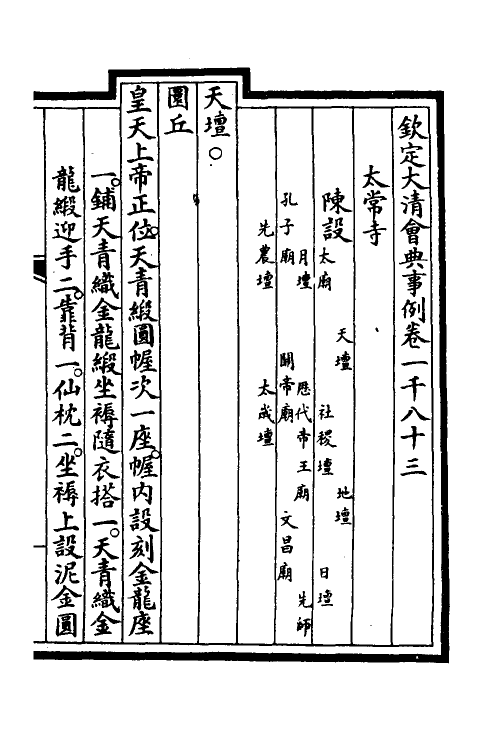 欽定大清會典事例卷一千八十三
太常寺
陳設
天壇 地壇
太廟 社稷壇 日壇
月壇 厯代帝王廟 先師
孔子廟 關帝廟 文昌廟
先農壇 太歲壇
天壇○
圜丘
皇天上帝正位。天青緞圓幄次一座。幄內設刻金龍座
一。鋪天青織金龍緞坐褥隨衣搭一。天青織金
龍緞迎手二。靠背一。仙枕二。坐褥上設泥金圓